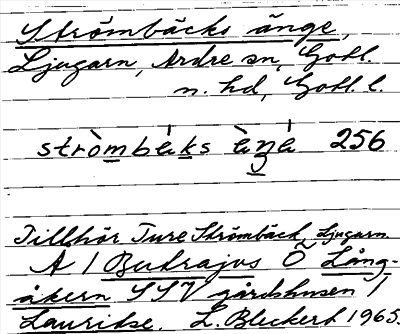 Strömbäcks änge,
Ljugarn, Ardre sn, Gotl.
n. hd, Gotl. l.
stròmbǻks 256
Tillhör Ture Strömbäck Ljugarn.
A / Butrajvs Ö Lång-
åkern SSV gårdshusen /
Lauritse. L. Bleckert 1965.